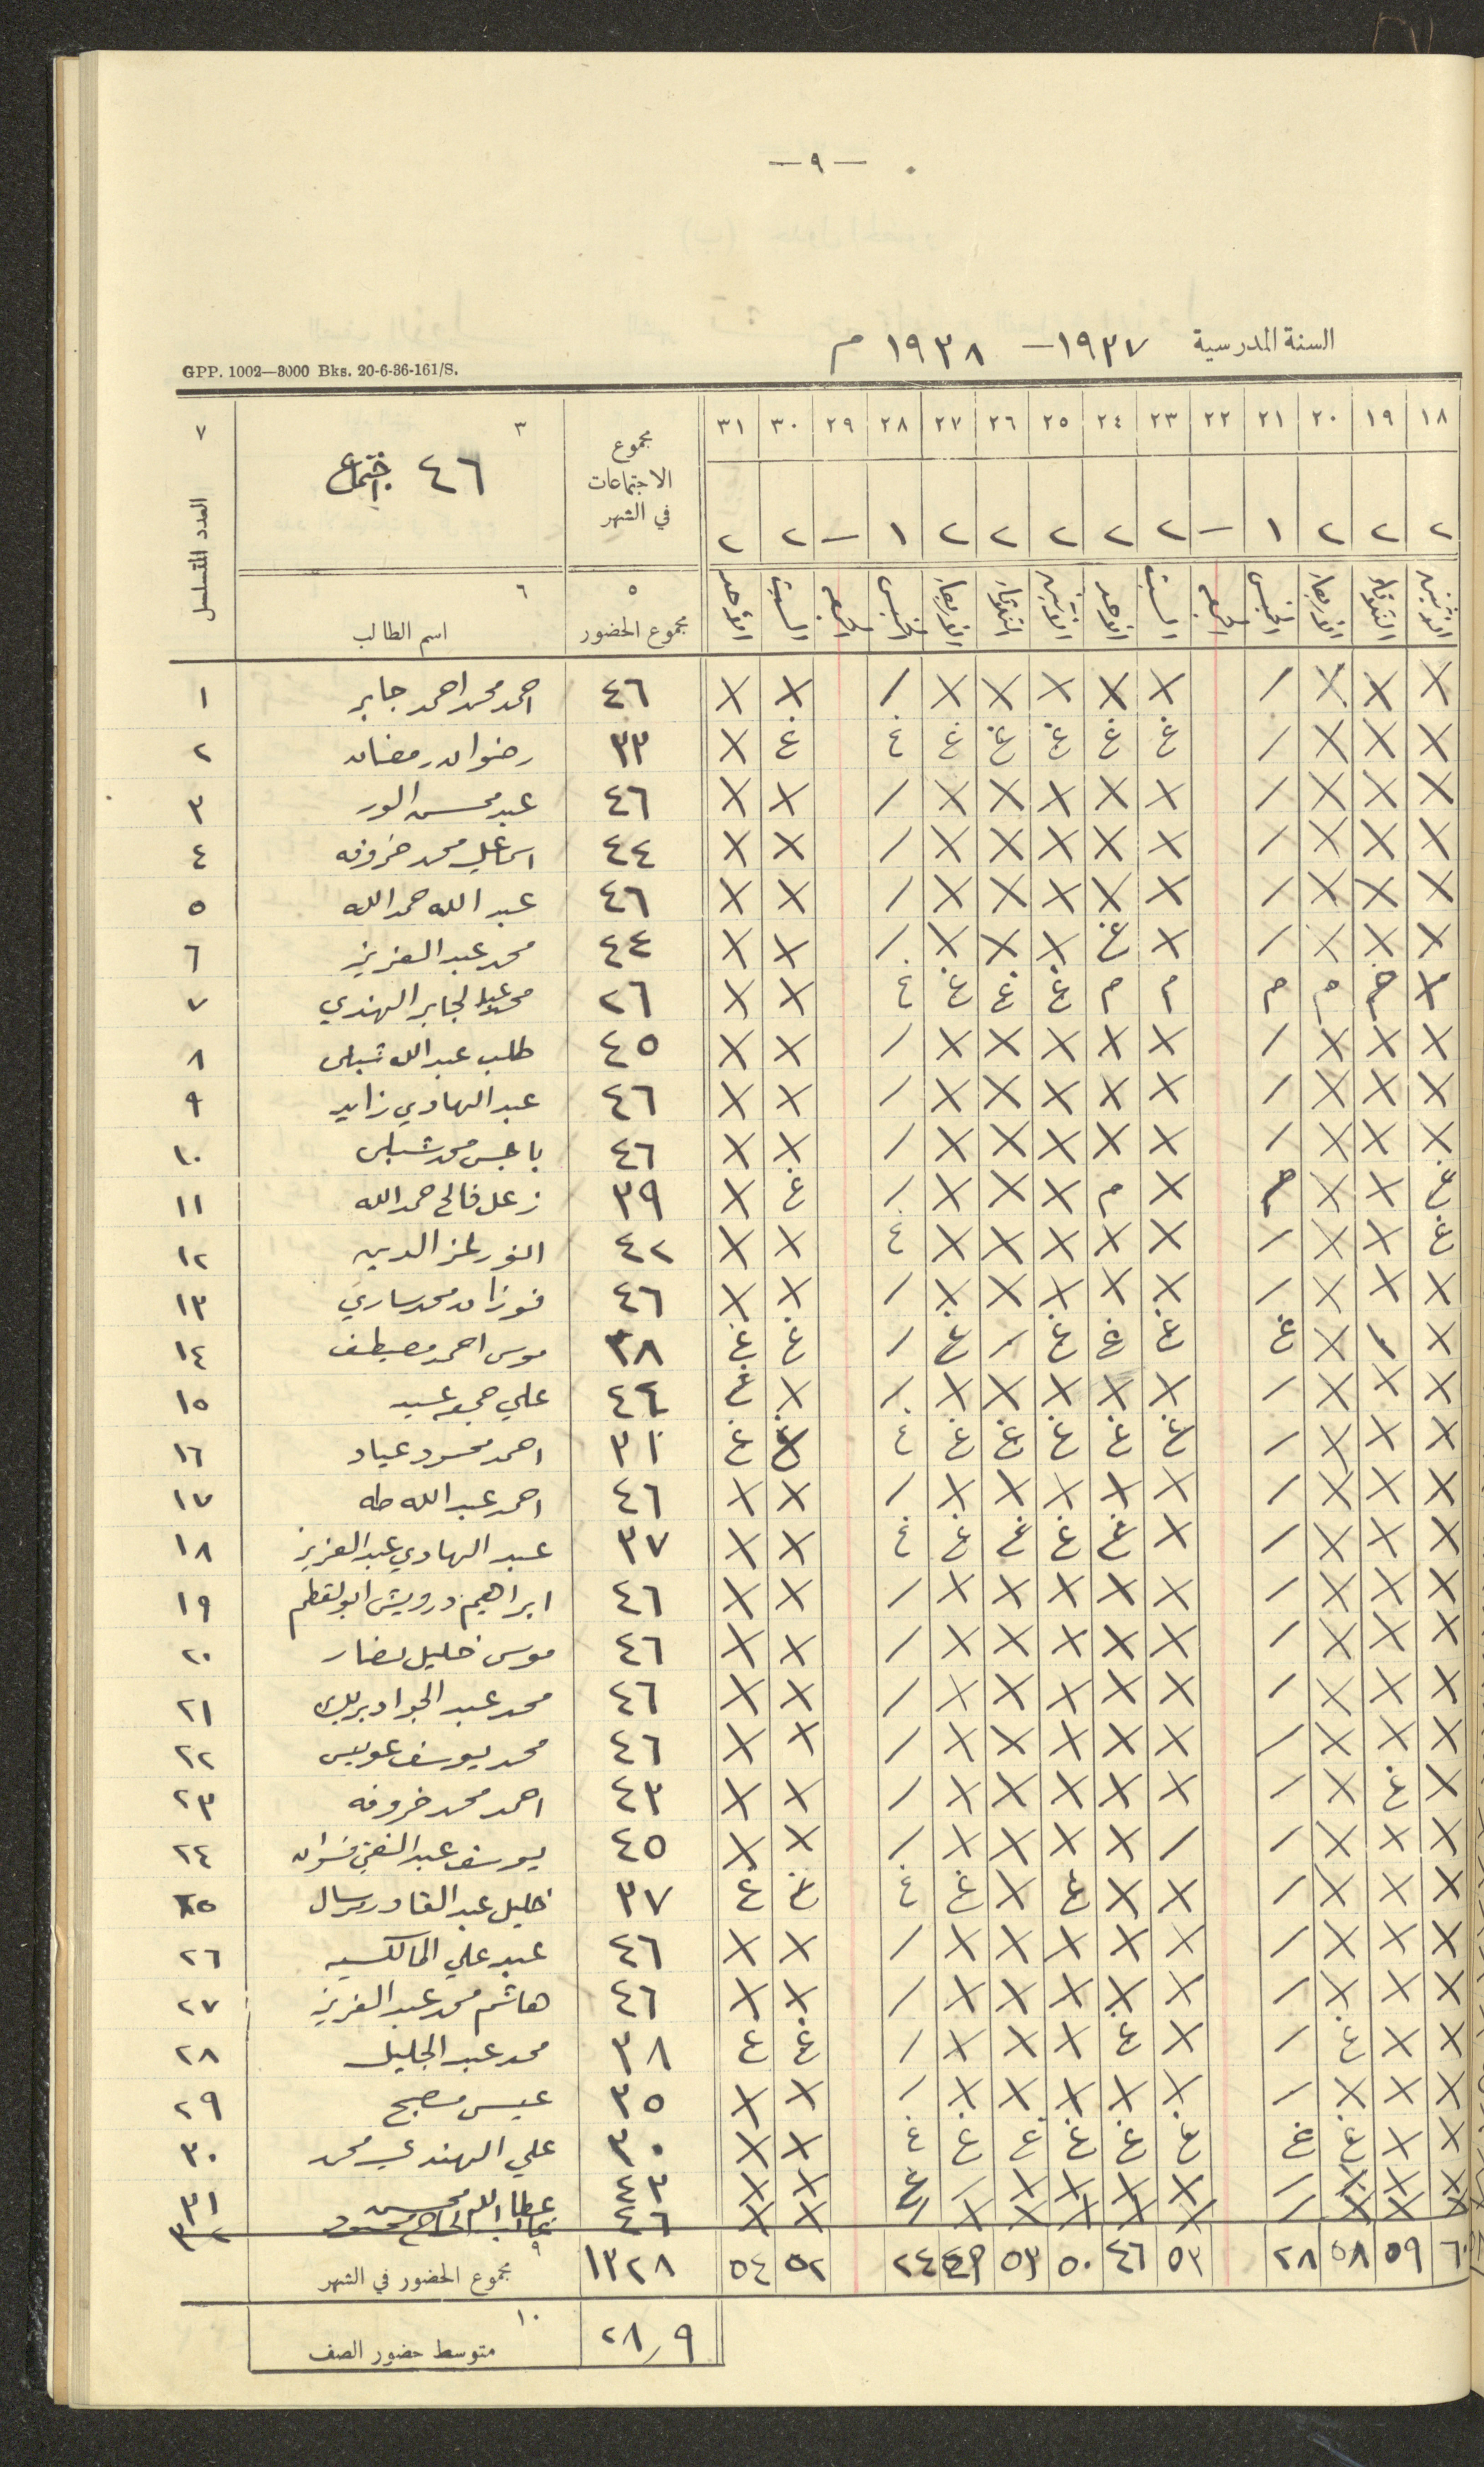 — ٩ —
السنة المدرسية ١٩٣٧ — ١٩٣٨ م
GPP. 1002—3000 Bks. 20-6-36-161/S.
١٨ ١٩ ٢٠ ٢١ ٢٢ ٢٣ ٢٤ ٢٥ ٢٦ ٢٧ ٢٨ ٢٩ ٣٠ ٣١ مجموع الاجتماعات في الشهر ٣ ٧
٢ ٢ ٢ ١ — ٢ ٢ ٢ ٢ ٢ ١ — ٢ ٢ ٤٦ اجتماع العدد المتسلسل
الاثنين الثلاثاء الاربعاء الخميس الجمعه السبت الاحد الاثنين الثلاثاء الاربعاء الخميس الجمعه السبت الأحد ٥ مجموع الحضور ٦ اسم الطالب
X X X / X X X X X / X X ٤٦ احمد محمد احمد جابر ١
X X X / غ غ غ غ غ غ غ X ٣٣ رضوان رمضان ٢
X X X / X X X X X / X X ٤٦ عبد محسن ٣
X X X / X X X X X / X X ٤٤ اسماعيل محمد خروفه ٤
X X X / X X X X X / X X ٤٦ عبد الله حمد الله ٥
X X X / X غ X X X / X X ٤٤ محمد عبد العزيز ٦
X م م م م م غ غ غ غ X X ٢٦ محمد عبد الجابر الهندي ٧
X X X / X X X X X / X X ٤٥ طلب عبد الله شبلي ٨
X X X / X X X X X / X X ٤٦ عبد الهادي زايد ٩
X X X / X X X X X / X X ٤٦ محمد شبلي ١٠
غ X X م X م X X X / غ X ٣٩ زعل فالح حمد الله ١١
غ X X / X X X X X غ X X ٤٢ النور الدين ١٢
X X X / X X X X X / X X ٤٦ فوزان محمد ساري ١٣
X \ X غ غ غ غ / غ / غ غ ٣٨ موسى احمد مصيطف ١٤
X X X / X X X X X / X غ ٤٤ علي جمعه عبيد ١٥
X X X / غ غ غ غ غ غ غ غ ٣١ احمد محمود عياد ١٦
X X X / X X X X X / X X ٤٦ احمد عبد الله طه ١٧
X X X / X غ غ غ غ غ X X ٣٧ عبد الهادي عبد العزيز ١٨
X X X / X X X X X / X X ٤٦ ابراهيم درويش ١٩
X X X / X X X X X / X X ٤٦ موسى خليل نصار ٢٠
X X X / X X X X X / X X ٤٦ محمد عبد الجواد ٢١
X X X / X X X X X / X X ٤٦ محمد يوسف عويس ٢٢
X غ X / X X X X X / X X ٤٣ احمد محمد خروفه ٢٣
X X X / / X X X X / X X ٤٥ يوسف عبد الغني ٢٤
X X X / X X غ X غ غ غ غ ٣٧ خليل عبد القادر ٢٥
X X X / X X X X X / X X ٤٦ عبد علي ٢٦
X X X / X X X X X / X X ٤٦ هاشم محمد عبد العزيز ٢٧
X X غ / X غ X X X / غ غ ٣٨ محمد عبد الجليل ٢٨
X X X / X X X X X / X X ٣٥ عيسى مصبح ٢٩
X X غ غ غ غ غ غ غ غ X X ٣٠ علي الهندي محمد ٣٠
X X X / X X X X / غ X X ٤٣ عطا الله محسن ٣١
X X X / X X X X X / X X ٤٦ ٣٢
٦٠ ٥٩ ٥٨ ٢٨ ٥٣ ٤٦ ٥٠ ٥٣ ٤٩ ٢٤ ٥٢ ٥٤ ١٣٢٨ ٩ مجموع الحضور في الشهر
٢٨٫٩ ١٠ متوسط حضور الصف